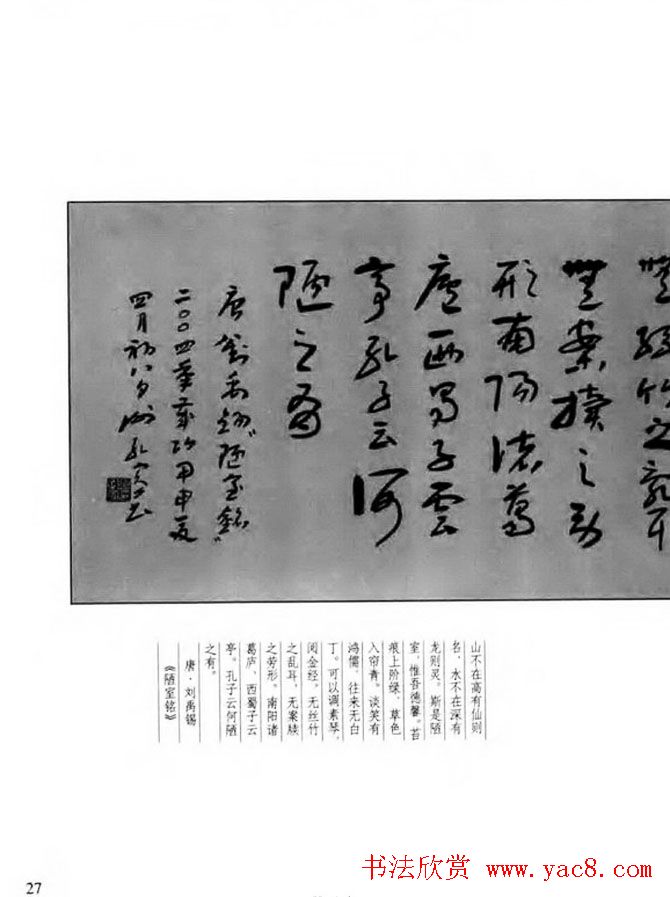 無絲竹之亂耳
無案牘之勞
形南陽諸葛
廬西蜀子雲
亭孔子云何
陋之有
唐劉禹錫"陋室銘"
二〇〇四年歲次甲申夏
四月初八日謝孔賓書
山不在高有仙则
名，水不在深有
龙则灵，斯是陋
室，惟吾德馨。苔
痕上阶绿，草色
入帘青。谈笑有
鸿儒，往来无白
丁。可以调素琴，
阅金经。无丝竹
之乱耳，无案牍
之劳形。南阳诸
葛庐，西蜀子云
亭。孔子云何陋
之有。
唐·刘禹锡
《陋室铭》
27
书法欣赏 www.yac8.com